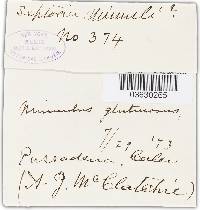 Septoria Mimuli ?
No 374
NEW YORK
03630265
Mimulus glutinosus,
7/29 '93
Passadena, Calif
(A. J. McClatchie)